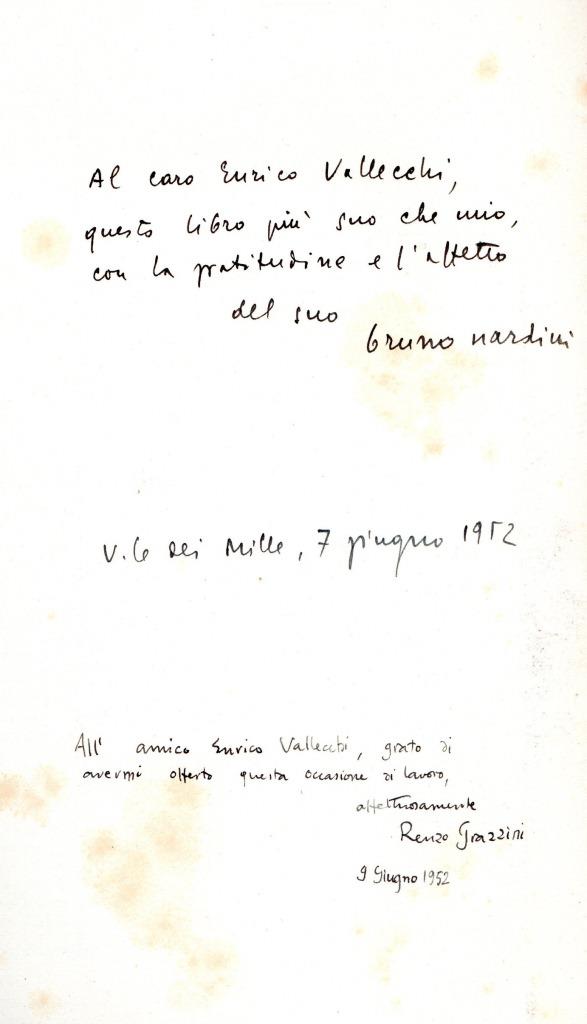 Al caro Enrico Vallecchi,
questo libro più suo che mio,
con la gratitudine e l'affetto
del suo
bruno nardini
V.le dei Mille, 7 giugno 1952
All' amico Enrico Vallecchi, grato di
avermi offerto questa occasione di lavoro,
affettuosamente
Renzo Grazzini
9 Giugno 1952